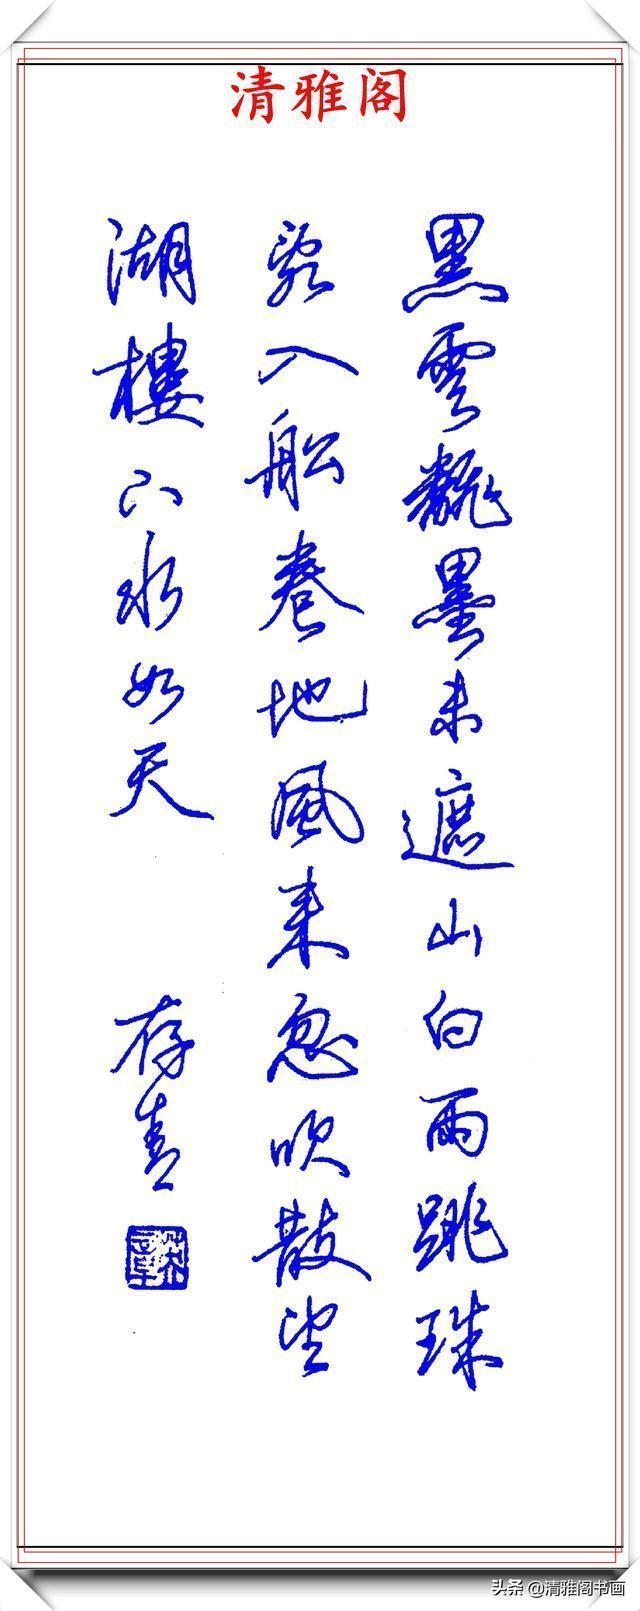 清雅阁
黑雲飜墨未遮山白雨跳珠
亂入舩卷地風来忽吹散望
湖樓下水如天 存
头条 @清雅阁书画